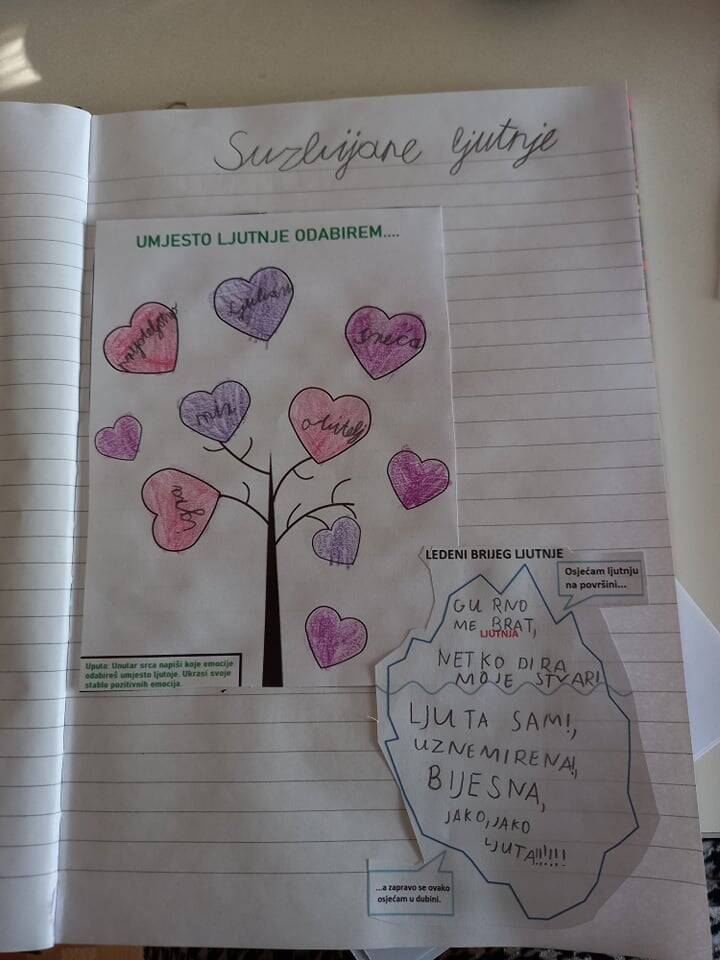 Suzbijane ljutnje
UMJESTO LJUTNJE ODABIREM....
ljubav
prijateljstvo
sreća
mir
obitelj
Uputa: Unutar srca napiši koje emocije
odabireš umjesto ljutnje. Ukrasi svoje
stablo pozitivnih emocija.
LEDENI BRIJEG LJUTNJE
Osjećam ljutnju
na površini...
GURNO
ME BRAT,
LJUTNJA
NETKO DIRA
MOJE STVARI
LJUTA SAM!,
UZNEMIRENA!,
BIJESNA,
JAKO, JAKO
LJUTA!!!!!!
...a zapravo se ovako
osjećam u dubini.